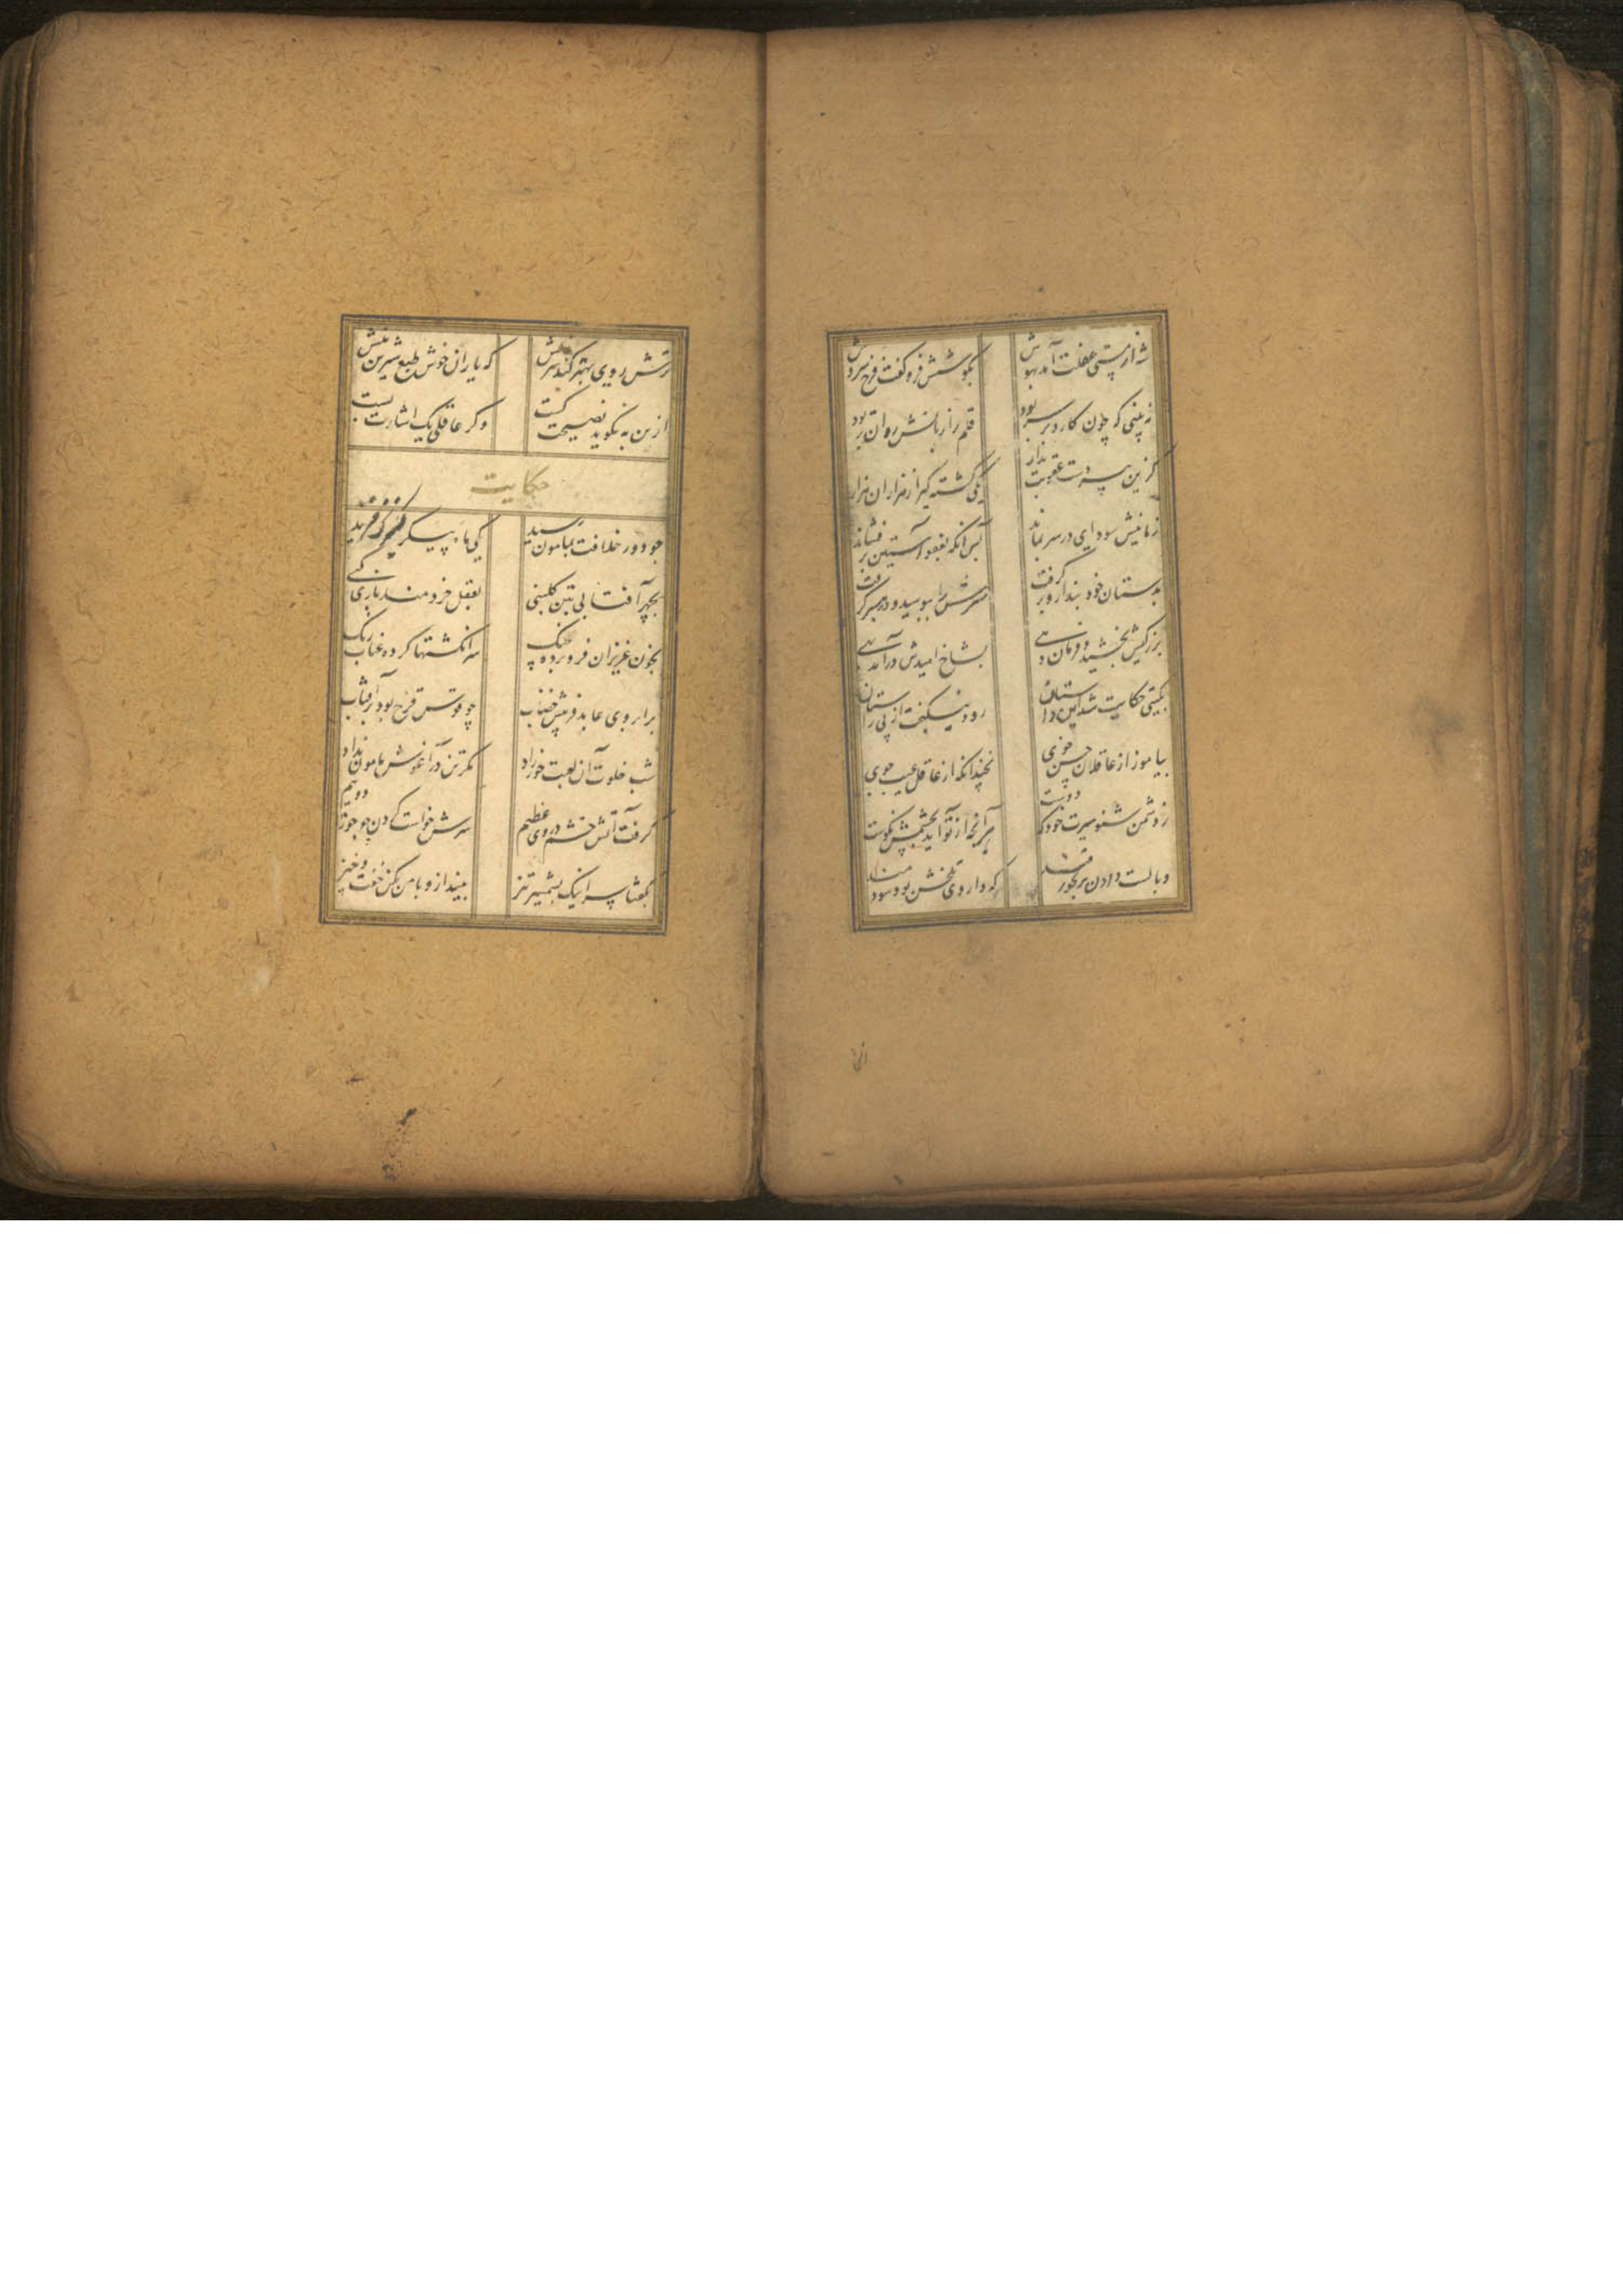 شه از مستی غفلت آمد بهوش بکوشش فرو گفت فرخ سروش
نه بینی که چون کارد بر سر بود قلم را زبانش روان تر بود
کزین پیر دست عقوبت بدار یکی کشته گیر از هزاران هزار
زمانیش سودای در سر بماند پس آنکه بعفو آستین بر فشاند
بدستان خود بند ازو بر گرفت سرش را ببوسید و در بر گرفت
بزرگیش بخشید و فرمان دهی بشاخ امیدش در آمد بهی
بگیتی حکایت شد این داستان رود نیکبخت از پی راستان
بیاموز از عاقلان حسن خوی نچندانکه از عاقل عیب جوی
ز دشمن شنو سیرت خود که دوست هر آنچه از تو آید بچشمش نکوست
وبالست دادن برنجور قند که داروی تلخش بود سودمند
ترش روی بهتر کند سرزنش که یاران خوش طبع شیرین منش
ازین به نکوید نصیحت کست وگر عاقلی یک اشارت بست
حکایت
چو دور خلافت بمامون رسید یکی ماه پیکر کنیزک خرید
بچهر آفتابی بتن گلبنی بعقل خردمند بازی کنی
بخون عزیزان فرو برده چنگ سر انگشتها کرده عناب رنگ
بر ابروی عابد فریبش خضاب چو قوس قزح بود بر آفتاب
شب خلوت آن لعبت حورزاد مگر تن در آغوش مامون نداد
گرفت آتش خشم در وی عظیم سرش خواست کردن چو جوزا دو نیم
بگفتا سر اینک بشمشیر تیز بینداز و با من مکن خفت و خیز